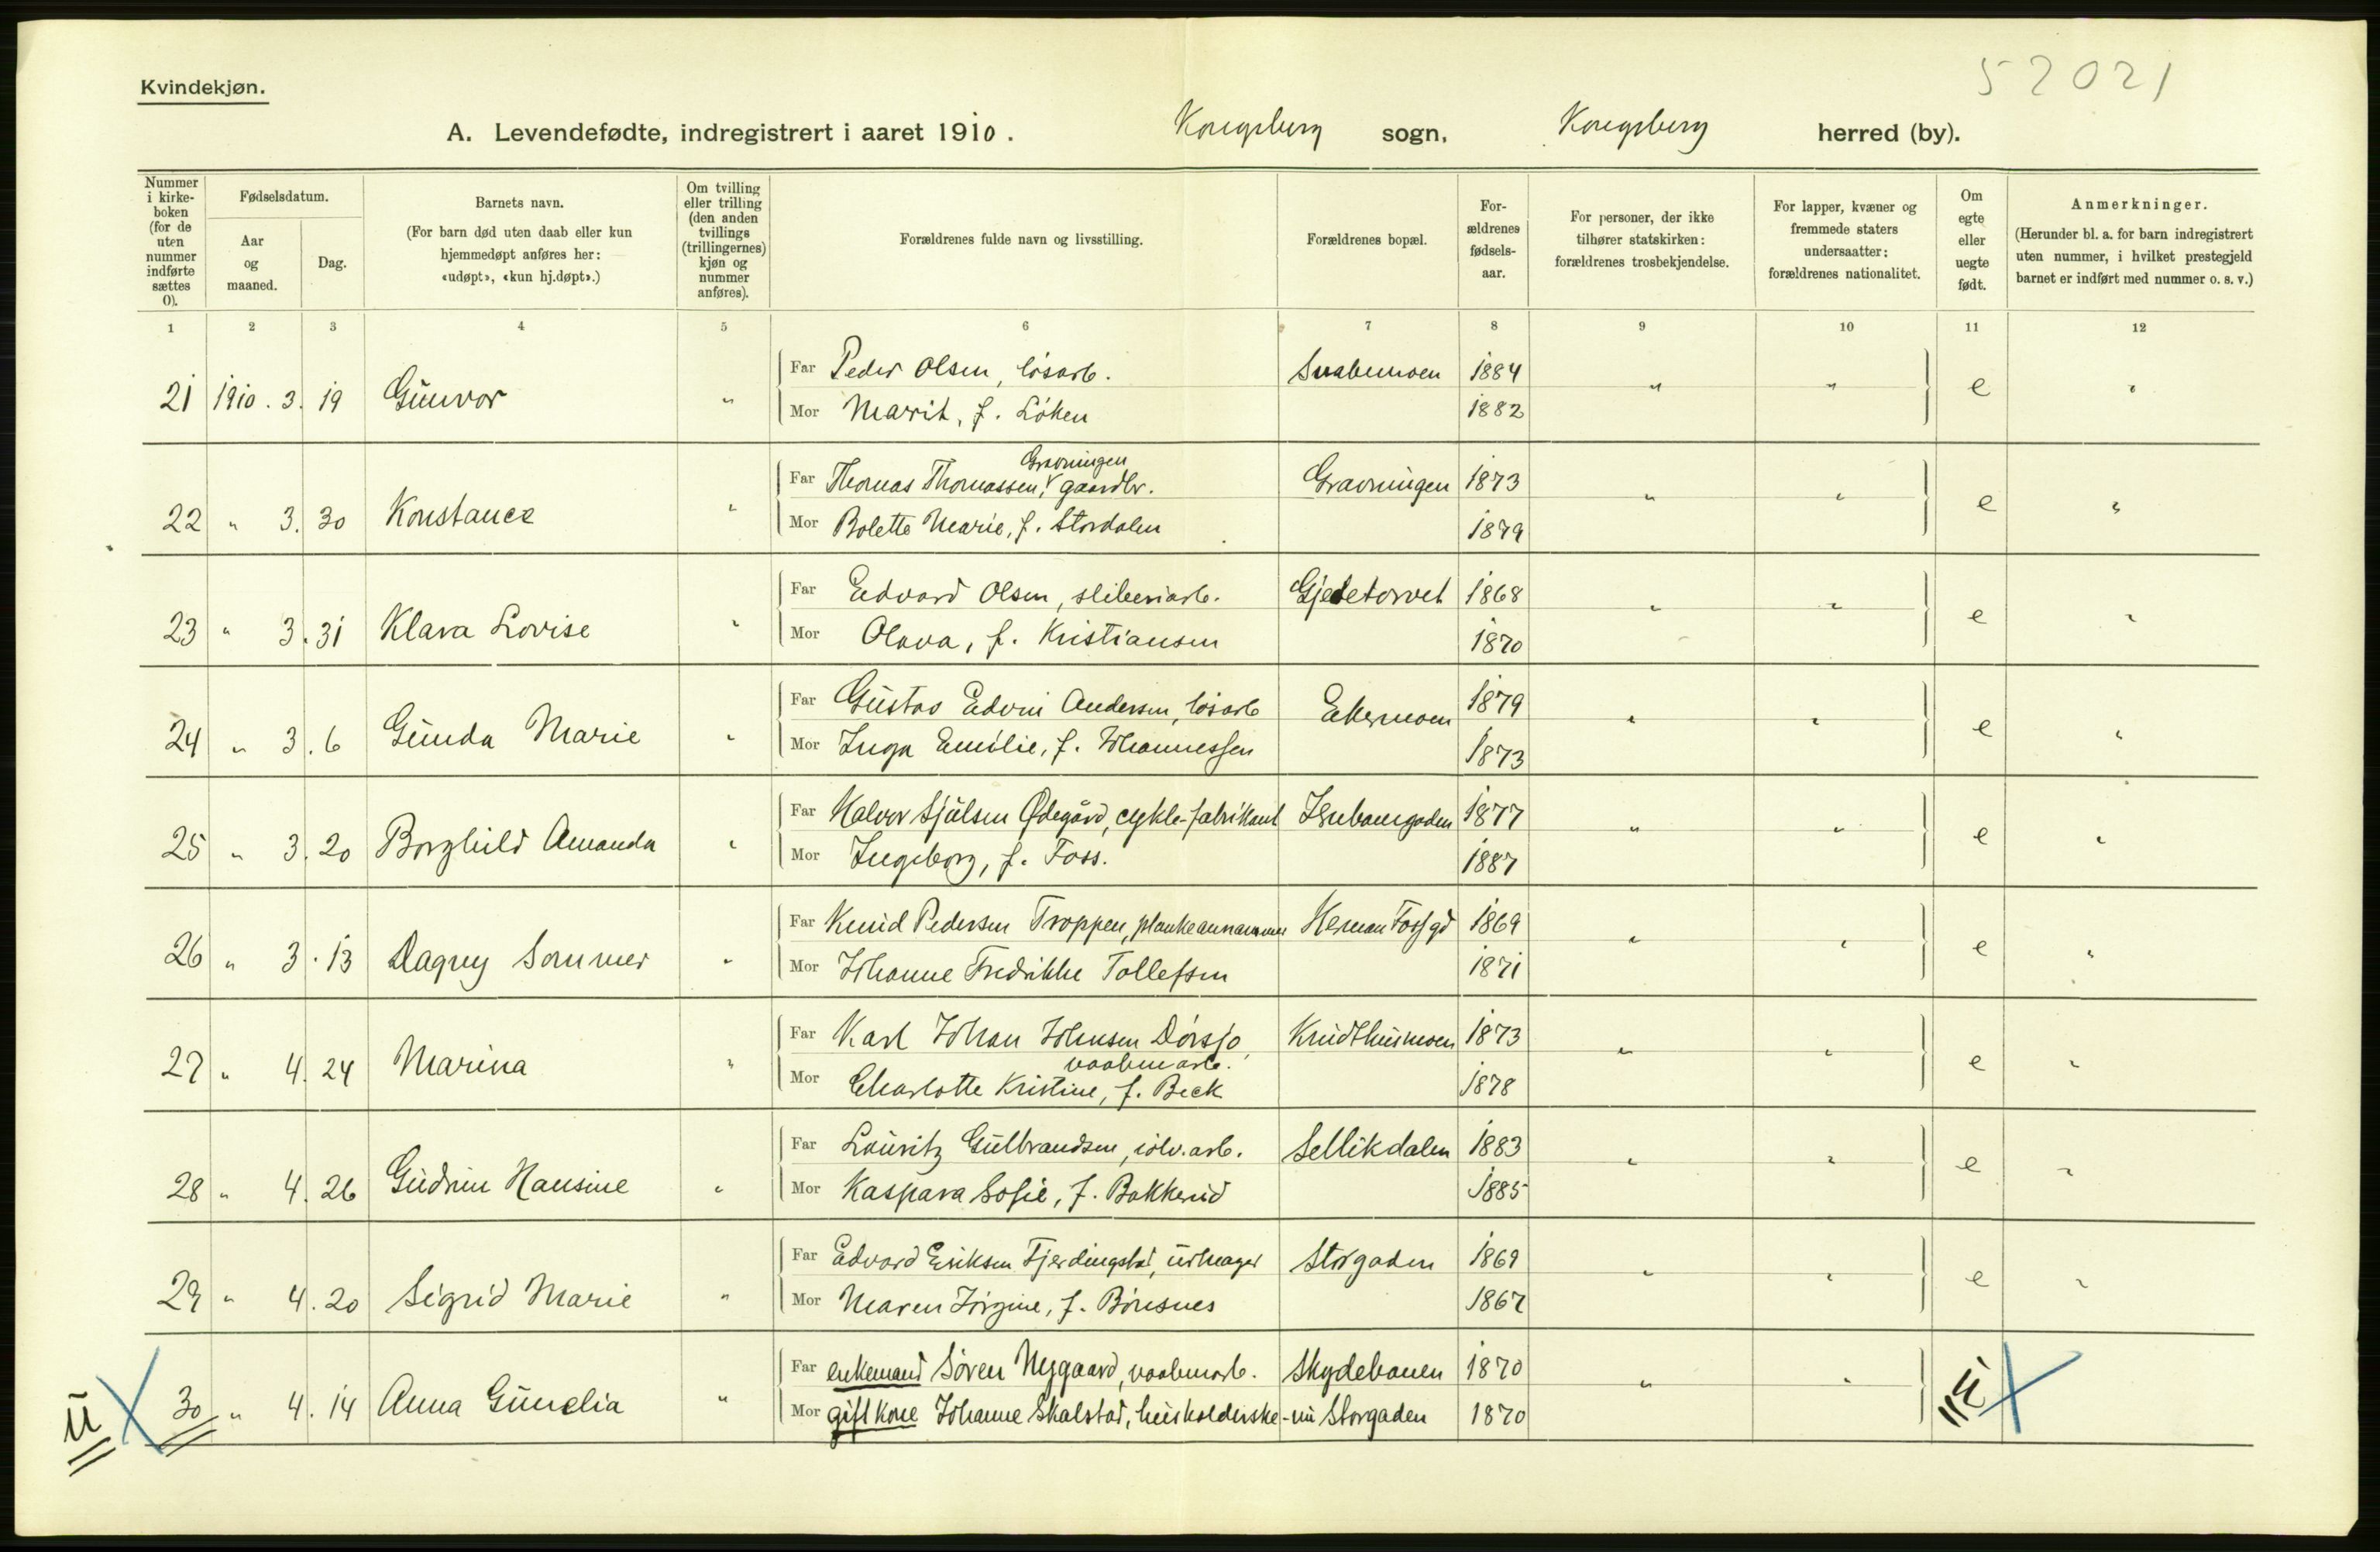 52021
Kvindekjøn.
A. Levendefødte, indregistrert i aaret 1910. Kongsberg sogn, Kongsberg herred (by).
Nummer i kirke-boken (for de uten nummer indførte sættes 0).
Fødselsdatum.
Aar og maaned.
Dag.
Barnets navn.
(For barn død uten daab eller kun hjemmedøpt anføres her: «udøpt», «kun hj.døpt».)
Om tvilling eller trilling (den anden tvillings (trillingernes) kjøn og nummer anføres).
Forældrenes fulde navn og livsstilling.
Forældrenes bopæl.
For-ældrenes fødsels-aar.
For personer, der ikke tilhører statskirken: forældrenes trosbekjendelse.
For lapper, kvæner og fremmede staters undersaatter: forældrenes nationalitet.
Om egte eller uegte født.
Anmerkninger.
(Herunder bl. a. for barn indregistrert uten nummer, i hvilket prestegjeld barnet er indført med nummer o. s. v.)
1 2 3 4 5 6 7 8 9 10 11 12
Far Peder Olsen, løsarb. 1884
21 1910. 3. 19 Gunvor " " " e "
Mor Marit, f. Løken 1882
Gravningen
Far Thomas Thomassen, gaardbr. Gravningen 1873
22 " 3. 30 Konstance " " " e "
Mor Bolette Marie, f. Stordalen 1879
Far Edvard Olsen, sliberiarb. Gjedetorvet 1868
23 " 3. 31 Klara Lovise " " " e "
Mor Olava, f. Kristiansen 1870
Far Gustav Edvin Andersen, løsarb Ekermoen 1879
24 " 3. 6 Gunda Marie " " " e "
Mor Inga Emilie, f. Johannessen 1873
Far Halvor Sjulsen Ødegård, cykle-fabrikant 1877
25 " 3. 20 Borghild Amanda " " " e "
Mor Ingeborg, f. Foss. 1887
Far Knud Pedersen Troppen, plankeannammer Herman Fossgd 1869
26 " 3. 13 Dagny Sommer " " " e "
Mor Johanne Fredrikke Tollefsen 1871
Far Karl Johan Johnsen Dørsjø, Krudthusmoen 1873
vaabenarb.
27 " 4. 24 Marina " " " e "
Mor Charlotte Kristine, f. Beck 1878
Far Lauritz Gulbrandsen, sølv.arb. Sellikdalen 1883
28 " 4. 26 Gudrun Hansine " " " e "
Mor Kaspara Sofie, f. Bakkerud 1885
Far Edvard Eriksen Fjerdingstad, urmager Storgaden 1869
29 " 4. 20 Sigrid Marie " " " e "
Mor Maren Jørgine, f. Bönsnes 1867
Far enkemand Søren Nygaard, vaabenarb. Skydebanen 1870
u 30 " 4. 14 Anna Gunelia " " " "u"
Mor gift kone Johanne Skalstad, husholderske - nu Storgaden 1870